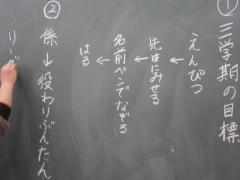 ① 三学期の目標
えんぴつ
↓
先生にみせる
↓
名前ペンでなぞる
↓
はる
② 係・当役わりぶんたん